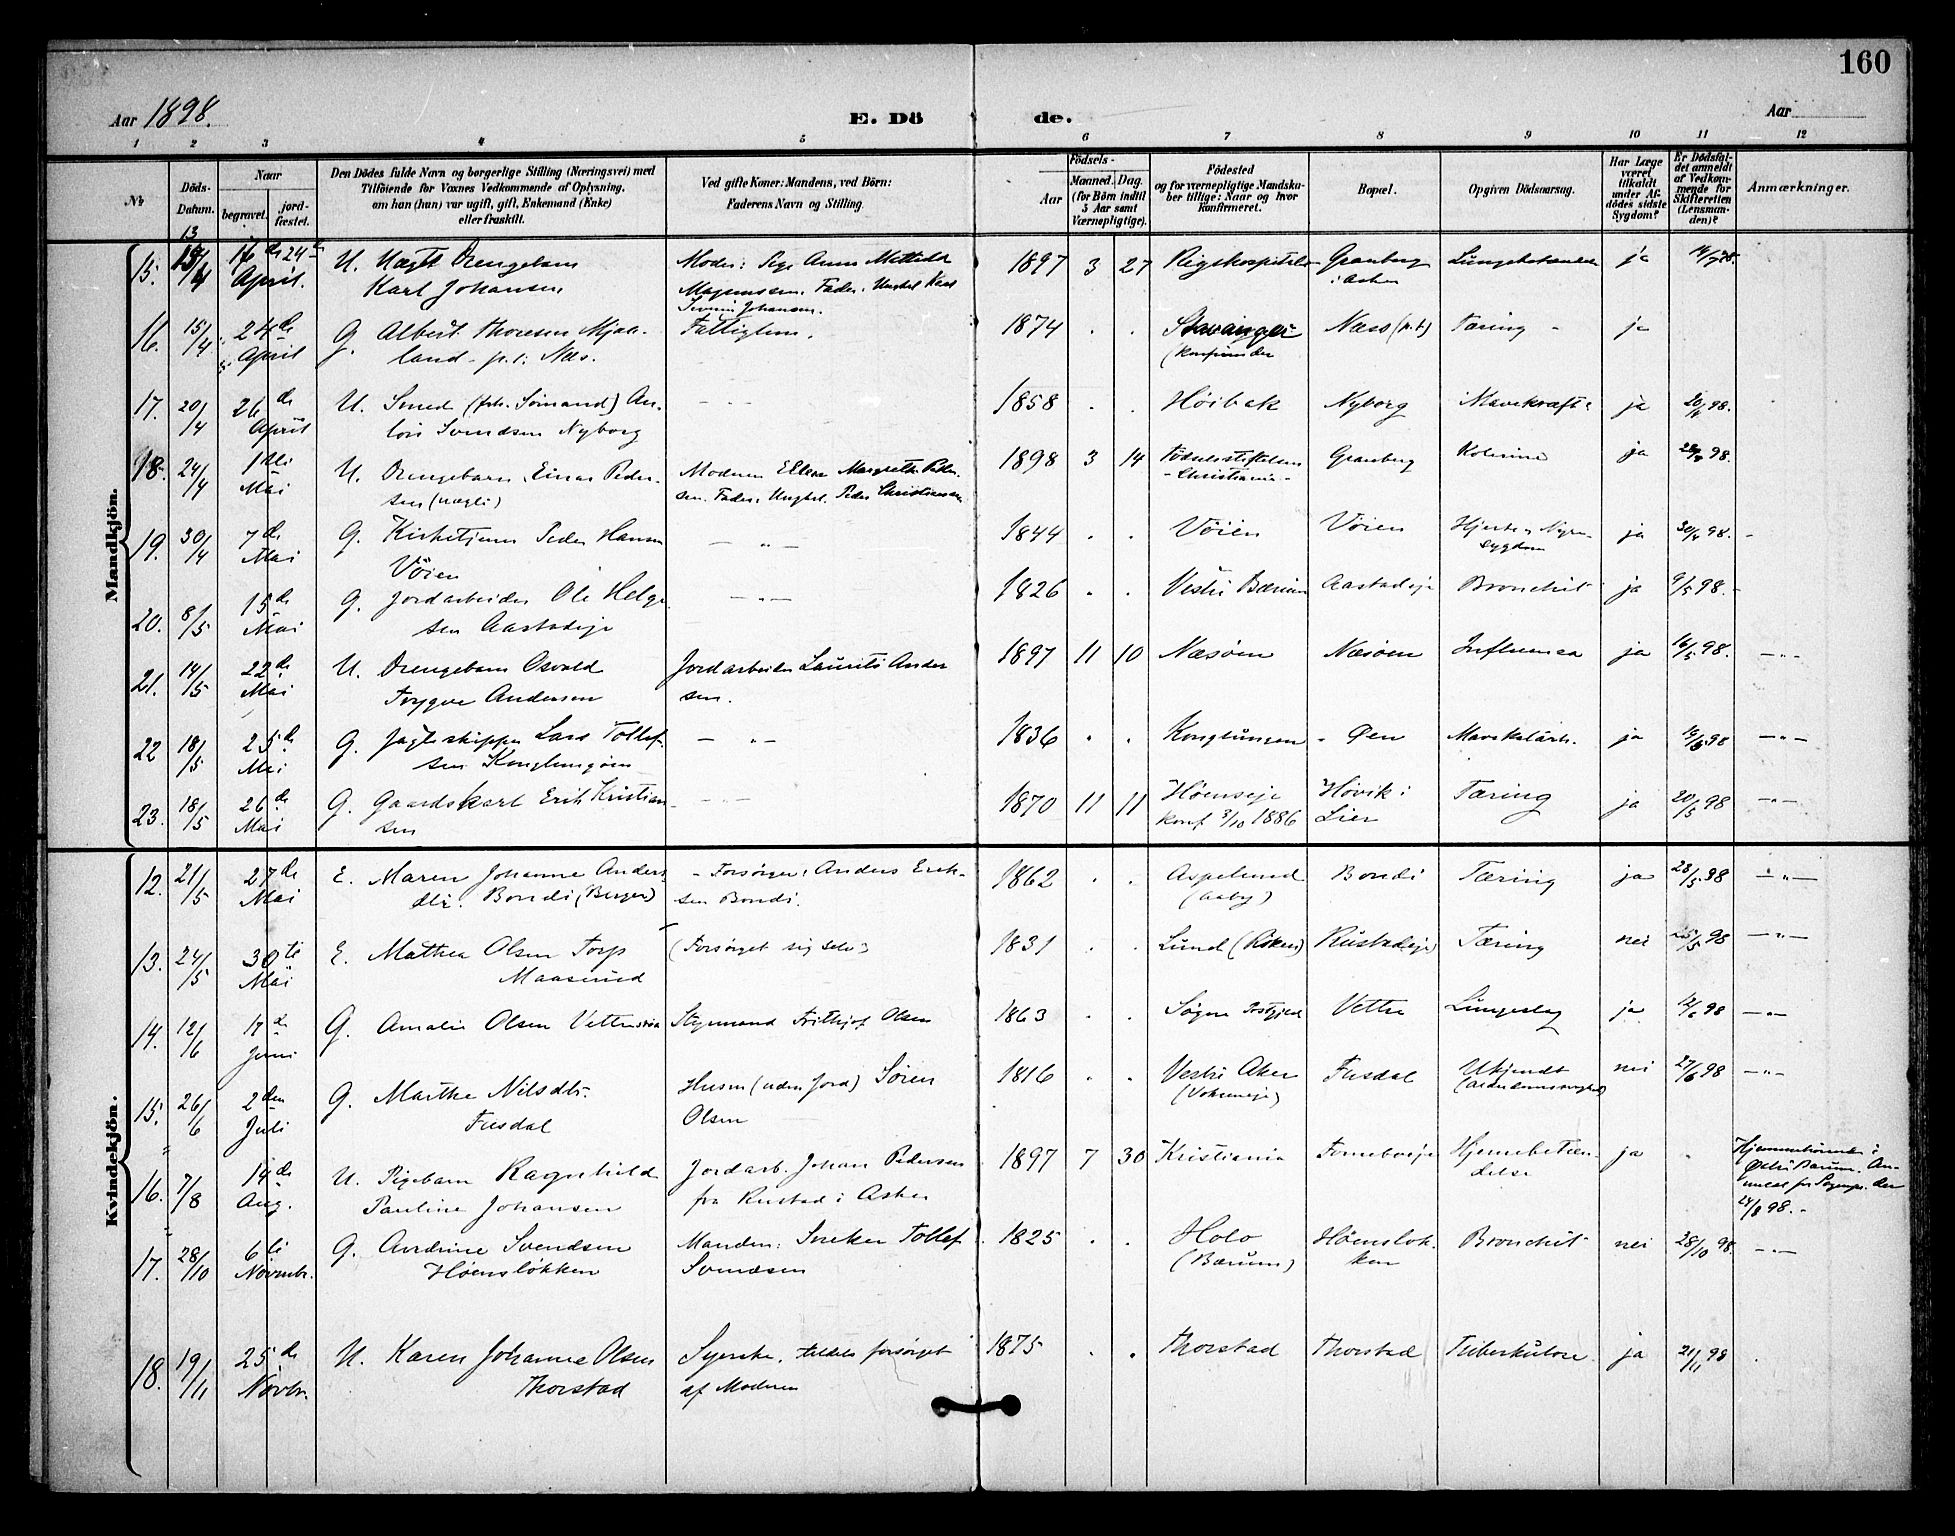 160
Aar 1898.
E. Dö de.
Aar
1 2 3 4 5 6 7 8 9 10 11 12
No
Döds-Datum.
Naar
begravet.
jord-fæstet.
Den Dödes fulde Navn og borgerlige Stilling (Næringsvei) med
Tilföiende for Voxnes Vedkommende af Oplysning,
om han (hun) var ugift, gift, Enkemand (Enke)
eller fraskilt.
Ved gifte Koner: Mandens, ved Börn:
Faderens Navn og Stilling.
Födsels-
Aar
Maaned. Dag.
(for Börn indtil
5 Aar samt
Værnepligtige).
Födested
og for værnepligtige Mandska-
ber tillige: Naar og hvor
konfirmeret.
Bopæl.
Opgiven Dödsaarsag.
Har Læge
været
tilkaldt
under Af-
dödes sidste
Sygdom?
Er Dödsfal-
det anmeldt
af Vedkom-
mende for
Skifteretten
(Lensman-
den)?
Anmærkninger.
Mandkjön.
15. 13/4 16 de 24 April. U. Drengebarn Karl Johansen Moder: Pige Anna Fader: Ungkarl Karl Johansen. 1897 3 27 Rigshospitalet Granberg i Asker ja
16. 15/4 24de April G. Albert Thoresen Mjaaland p.t. Næs. Fattiglem. 1874 . . Stavanger Næsø (p.t.) Tæring ja
17. 20/4 26de April U. Smed (forh. Sømand) Svendsen Nyborg 1858 . . Høibak Nyborg Mavekræft ja 20/4 98.
18. 24/4 1ste Mai U. Drengebarn Einar Pedersen (uægte) Moderen Ellen Margrethe Pedersen. Fader: Ungkel. Peder Christiansen 1898 3 14 Fødselsstiftelsen Christiania Granberg ja 98.
19. 30/4 7de Mai G. Peder Hansen Vöien — „ — 1844 . . Vöien Vöien Hjerte- Nyresygdom ja 30/4 98.
20. 8/5 15de Mai G. Jordarbeider Ole Helgesen Aastadeje — „ — 1826 . . Vestre Bærum Aastadeje Bronchit ja 9/5 98.
21. 14/5 22de Mai U. Drengebarn Osvald Trygve Andersen Jordarbeider Laurits Andersen. 1897 11 10 Næsøen Næsøen Influensa ja 16/5 98. — „ —
22 18/5 25de Mai G. Jagtskipper Lars Tollefsen Konglungøen — „ — 1836 . . Konglungen Øen Mavekatarh. ja 98 — „ —
23. 18/5 26de Mai G. Gaardskarl Erik Kristiansen — „ — 1870 11 11 Høenseje konf. 3/10 1886 Høvik i Lier Tæring ja 20/5 98 — „ —
Kvindekjön.
12. 21/5 27de Mai E. Maren Johanne Andersdtr. Bondi (Berger) Forsørger: Anders Eriksen Bondi. 1862 . . Aspelund (Aaby) Bondi Tæring ja 28/5 98 — „ —
13. 24/5 30te Mai E. Mathea Olsen Torp (Forsørget sig selv) 1831 . . Lund (Røken) Rustadeje Tæring nei 25/5 98 — „ —
14. 12/6 17de Juni G. Amalie Olsen Styrmand Frithjof Olsen 1863 . . Søgne Vettre ja 98 — „ —
15. 26/6 2den Juli G. Marthe Nilsdtr. Fusdal Husm (uden Jord) Søren Olsen 1816 . . Vestre Aker Fusdal Ukjendt nei 27/6 98 — „ —
16. 7/8 14de Aug. U. Pigebarn Ragnhild Pauline Johansen Jordarb. Johan Pedersen fra Rustad i Asker 1897 7 30 Kristiania Fornebueje Hjernebetændelse ja . Hjemmehørende i Østre Bærum. 98.
17. 28/10 6te Novmbr. G. Andrine Svendsen Høensløkken Manden: Snekker Tollef Svendsen 1825 . . Holo (Bærum) Høensløkken Bronchit nei 28/10 98. — „ —
18. 19/11 25de Novbr. U. Karen Johanne Olsen Thorstad Syerske, tildels forsørget af Moderen 1875 . . Thorstad Thorstad Tuberkulose ja 21/11 98 .